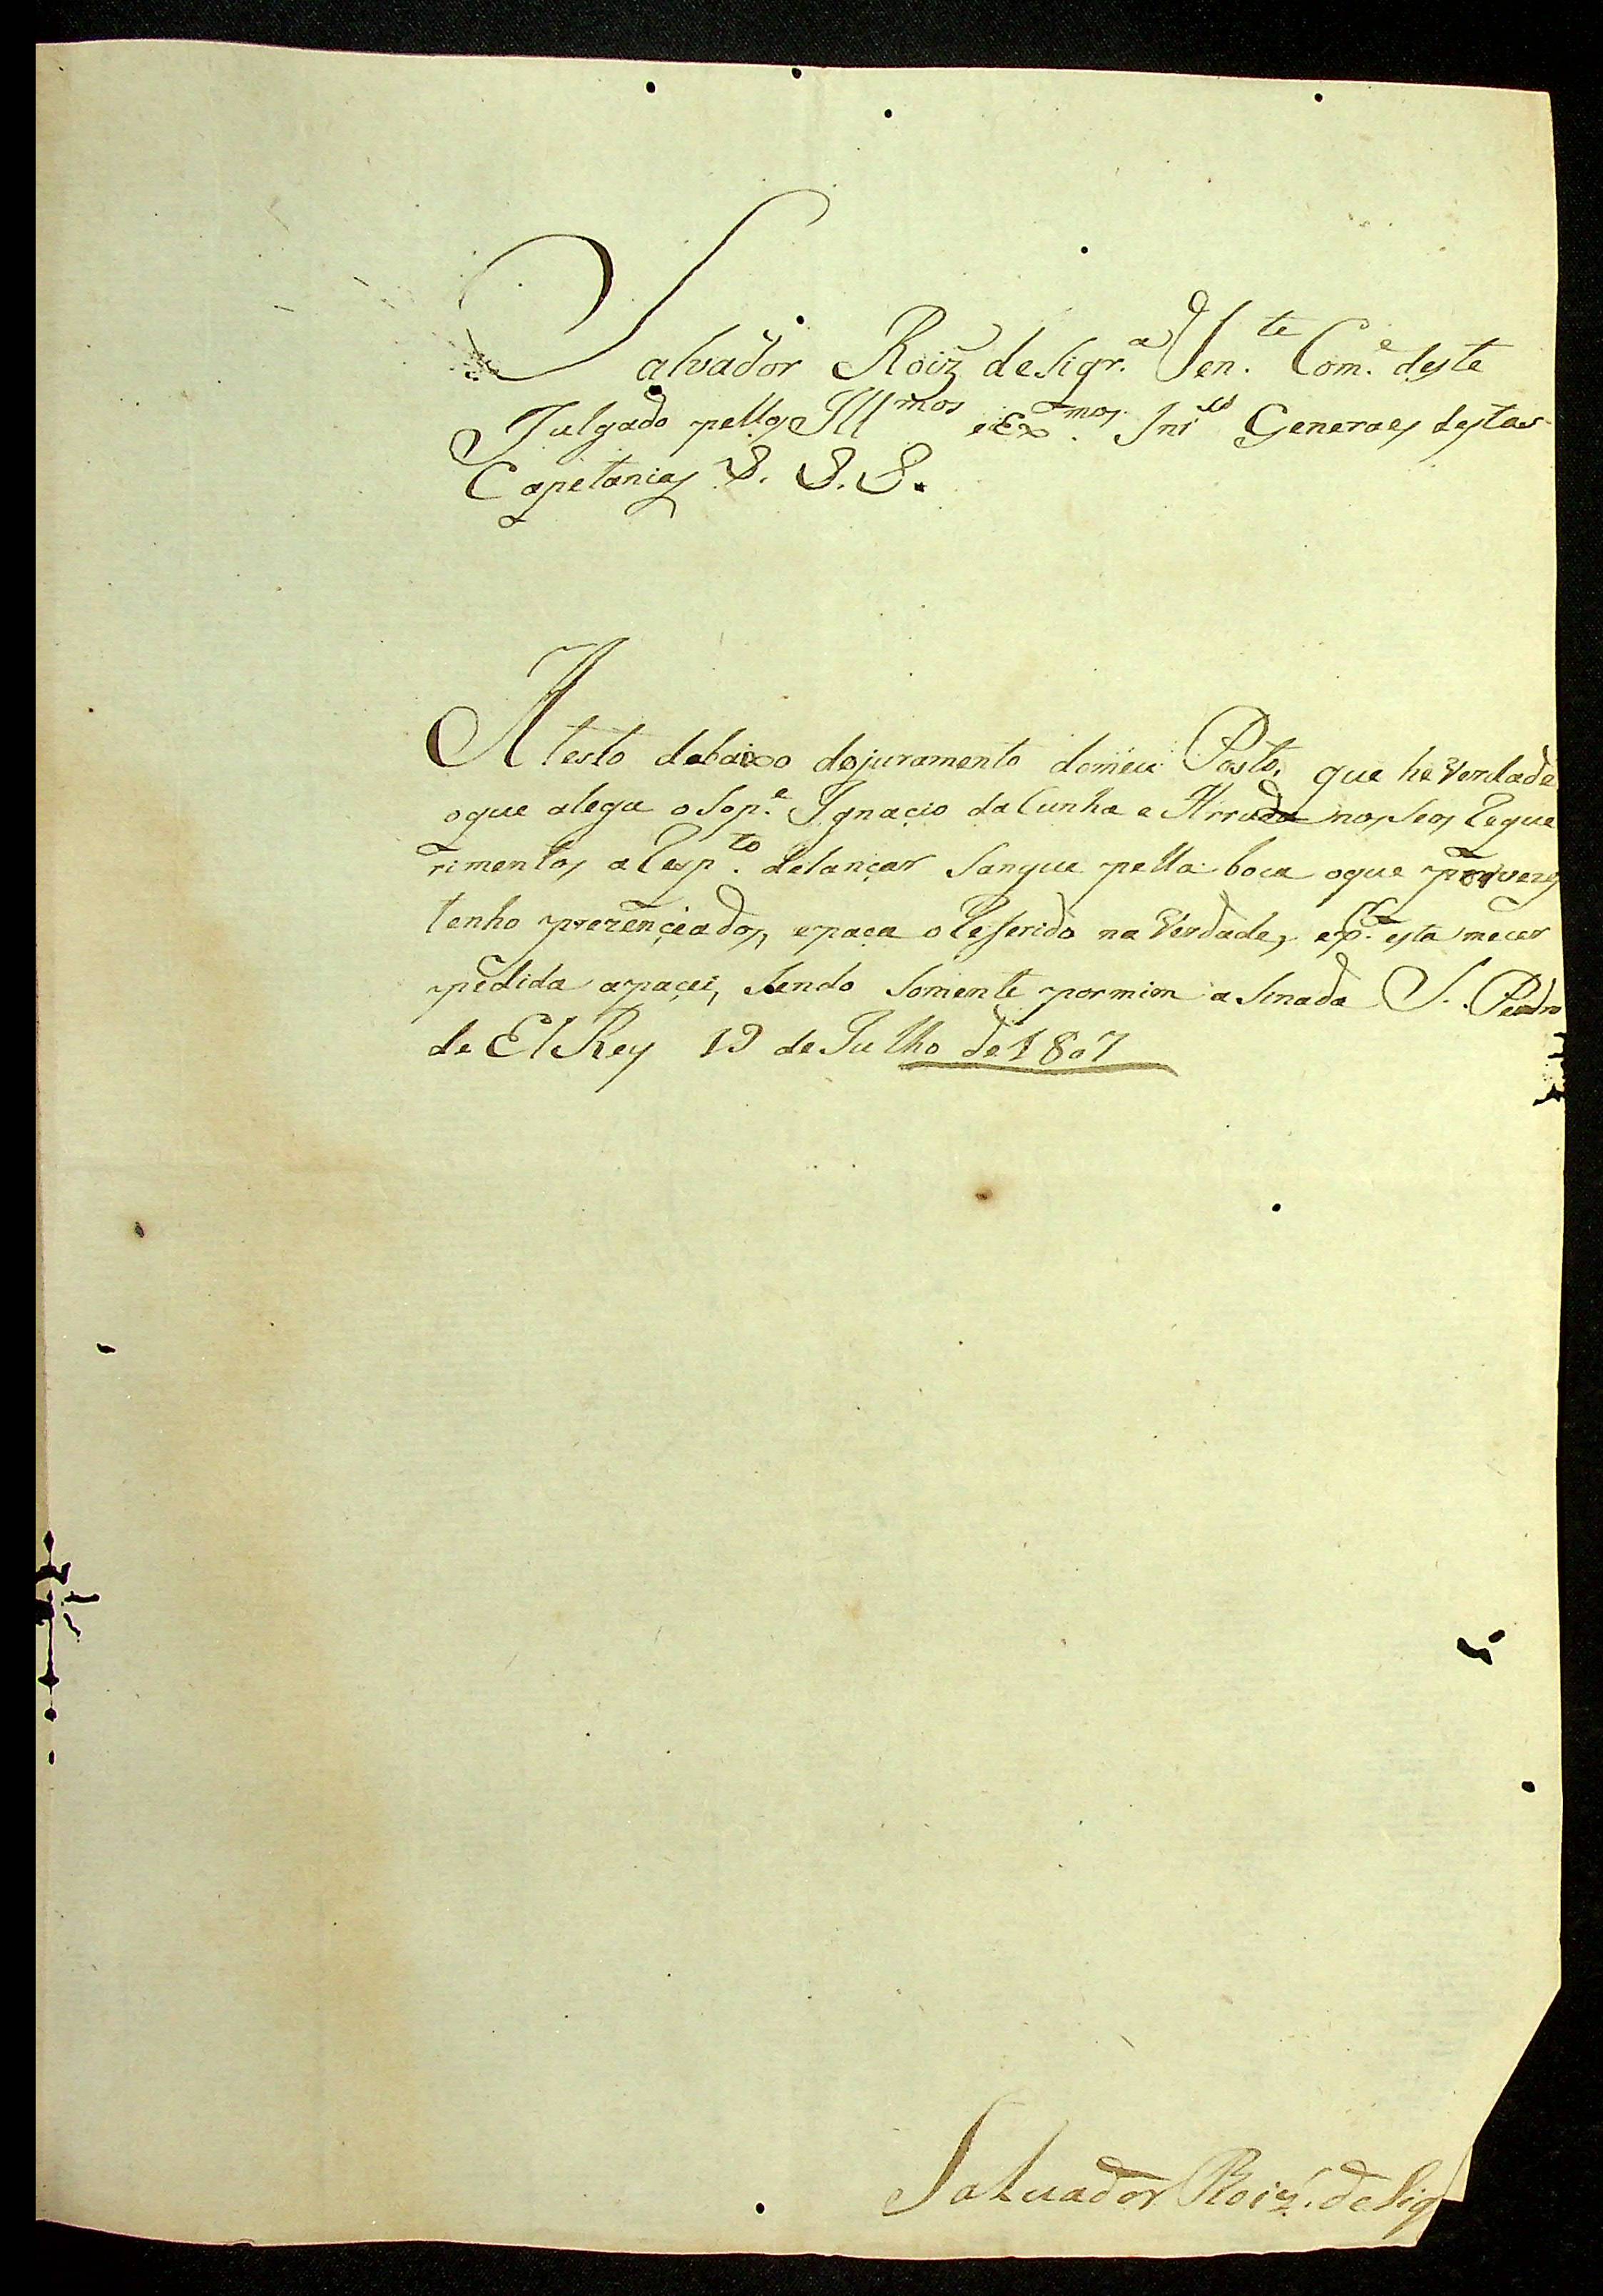 Salvador Roiz de Siqr.ª Ten.te Com.e deste
Julgado pellos Ill.mos e Ex.mos Snr.es Generaes destas
Capetanias &. &. &.
Atesto debaixo dojuramento domeu Posto, que he Verdade
oque alega o Sop.e Ignacio daCunha e Arruda nos Seos Reque
rimentos a Resp.to delançar Sangue pella boca oque por vezes
tenho prezençeados, epaça o Referido na Verdade, ep.r esta me cer
pedida apaçei, Sendo Somente pormim aSinada S. Pedro
de El Rey 19 de Julho de 1807
Salvador Roiz. de Siq